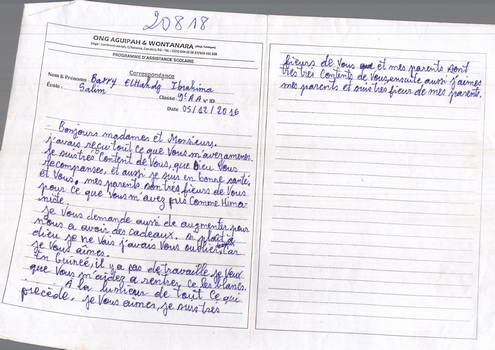 20818
ONG AGUIPAH & WONTANARA
PROGRAMME D'ASSISTANCE SCOLAIRE
Correspondance
Nom & Prénoms Barry ElHadg Ibrahima
École : Salim Classe 9e AA N° ID
Date : 05/12/2016
Bonjours madames et Monsieurs.
j'avais reçu tout ce que Vous m'aver amener
je suis très content de Vous, que Dieu Vous
recompanse, et aussi je suis en bonne santé,
et Vous, mes parents sont très fieurs de Vous
pour ce que Vous m'avez pris Comme Himar
niste.
je Vous demande aussi de augmenter pour
nous a avoir des cadeaux. Si plait à
dieu je ne Vais j'avais Vous oublier Car
je Vous aimes.
En Guinée, il y a pas de travaille je Veux
que Vous m'aidez a rentrer ce les blants.
A la lumieur de tout Ce qui
precède, je Vous aimes, je suis très
fieurs de Vous et mes parents sont
tres tres Contents de Vous, ensuite aussi j'aimes
mes parents et suis tres fieur de mes parents.